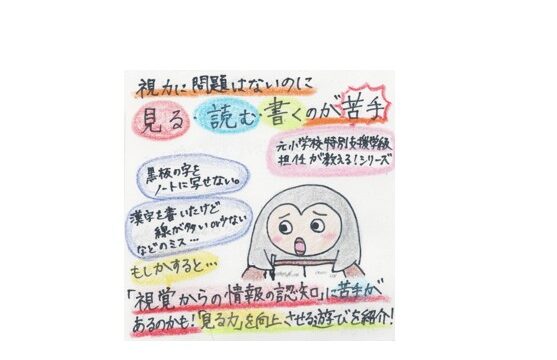 視力に問題はないのに
見る・読む・書くのが苦手
元小学校特別支援学級
担任が教える!シリーズ
黒板の字を
ノートに写せない。
漢字を書いたけど
線が多いor少ない
などのミス…
もしかすると…
「視覚からの情報の認知」に苦手が
あるのかも!「見る力」を向上させる遊びを紹介!